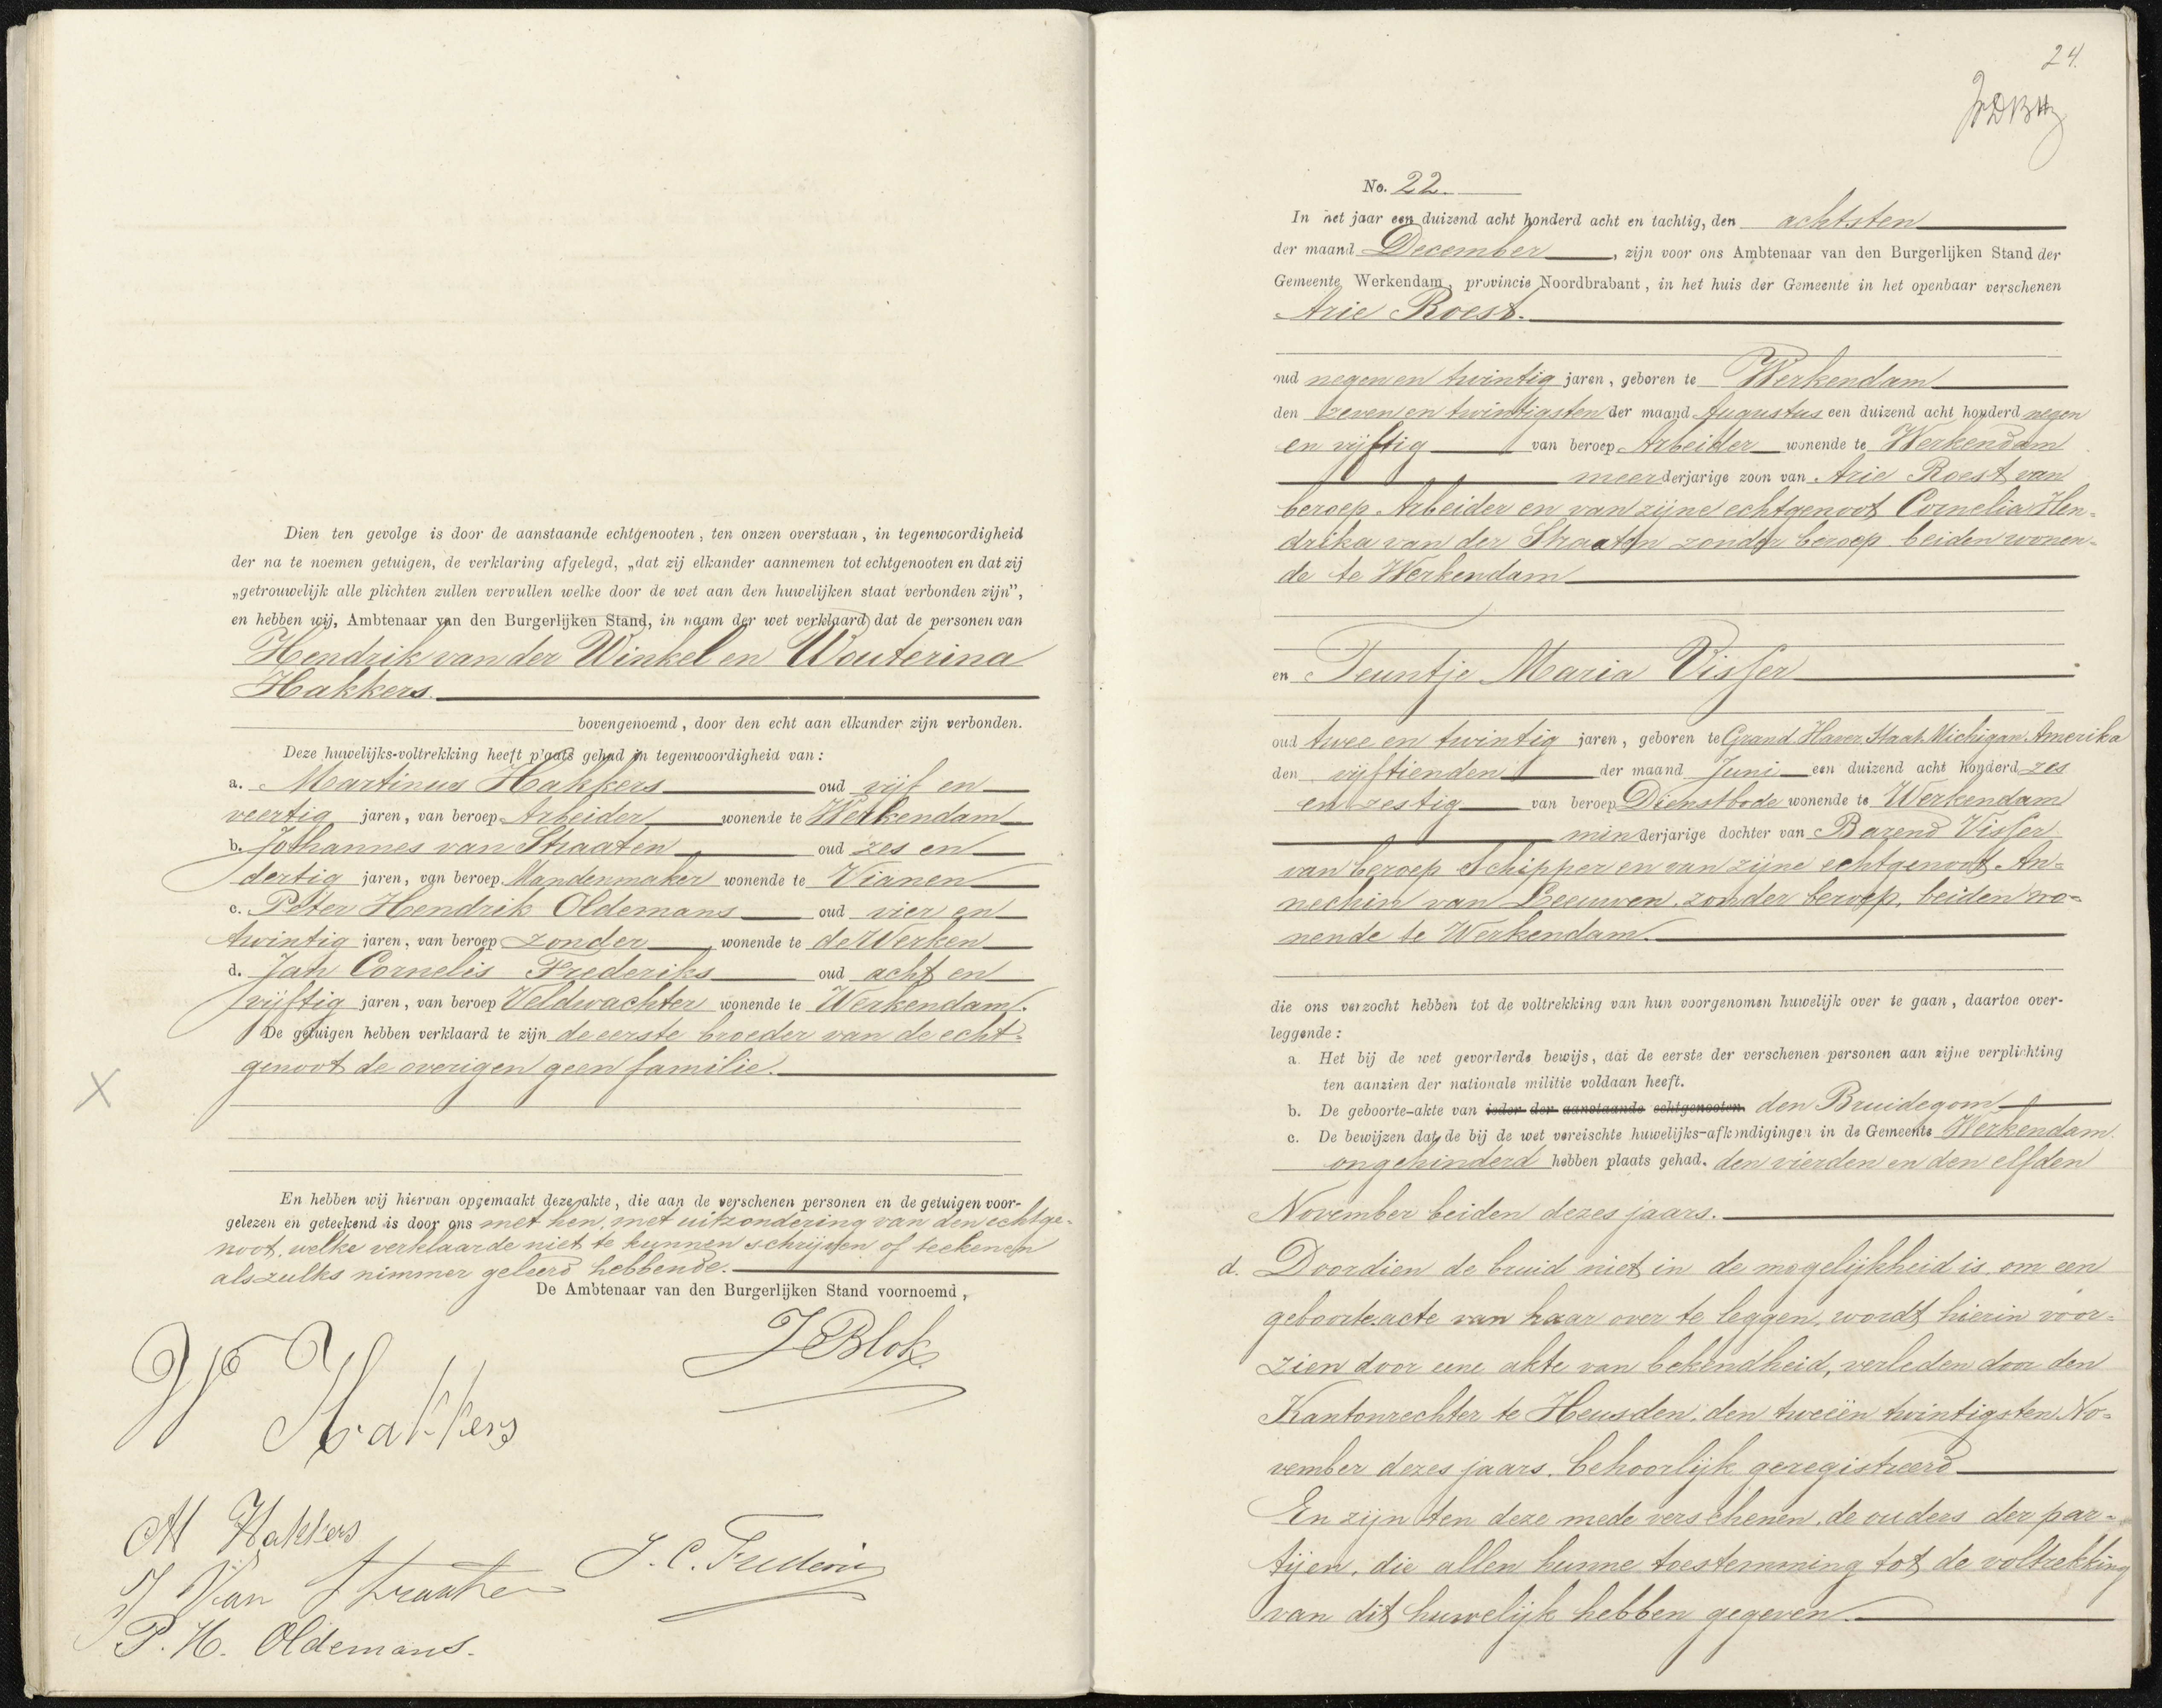 Dien ten gevolge is door de aanstaande echtgenooten, ten onzen overstaan, in tegenwoordigheid
der na te noemen getuigen, de verklaring afgelegd, „dat zij elkander aannemen tot echtgenooten en dat zij
„getrouwelijk alle plichten zullen vervullen welke door de wet aan den huwelijken staat verbonden zijn”,
en hebben wij, Ambtenaar van den Burgerlijken Stand, in naam der wet verklaard dat de personen van
Hendrik van der Winkel en Wouterina
Hakkers.
bovengenoemd, door den echt aan elkander zijn verbonden.
Deze huwelijks-voltrekking heeft plaats gehad in tegenwoordigheid van:
a. Martinus Hakkers oud vijf en
veertig jaren, van beroep Arbeider wonende te Werkendam
b. Johannes van Straaten oud zes en
dertig jaren, van beroep Mandenmaker wonende te Vianen
c. Peter Hendrik Oldemans oud vier en
twintig jaren, van beroep zonder wonende te de Werken
d. Jan Cornelis Frederiks oud acht en
vijftig jaren, van beroep Veldwachter wonende te Werkendam.
De getuigen hebben verklaard te zijn de eerste broeder van de echt-
genoot de overigen geen familie.
X
En hebben wij hiervan opgemaakt deze akte, die aan de verschenen personen en de getuigen voor-
gelezen en geteekend is door ons met hen, met uitzondering van den echtge-
noot, welke verklaarde niet te kunnen schrijven of teekenen
als zulks nimmer geleerd hebbende.
De Ambtenaar van den Burgerlijken Stand voornoemd,
J Blok
W Hakkers
M Hakkers
J Van Straaten
J. C. Frederiks
P. H. Oldemans.
24.
No. 22.
In het jaar een duizend acht honderd acht en tachtig, den achtsten
der maand December, zijn voor ons Ambtenaar van den Burgerlijken Stand der
Gemeente Werkendam, provincie Noordbrabant, in het huis der Gemeente in het openbaar verschenen
Arie Roest.
oud negen en twintig jaren, geboren te Werkendam
den zeven en twintigsten der maand Augustus een duizend acht honderd negen
en vijftig van beroep Arbeider wonende te Werkendam
meerderjarige zoon van Arie Roest van
beroep Arbeider en van zijne echtgenoot Cornelia Hen-
drika van der Straaten zonder beroep beiden wonen-
de te Werkendam
en Teuntje Maria Visser
oud twee en twintig jaren, geboren te Grand Haven Staat Michigan Amerika
den vijftienden der maand Juni een duizend acht honderd zes
en zestig van beroep Dienstbode wonende te Werkendam
minderjarige dochter van Barend Visser
van beroep Schipper en van zijne echtgenoot An-
nechin van Leeuwen, zonder beroep, beiden wo-
nende te Werkendam.
die ons verzocht hebben tot de voltrekking van hun voorgenomen huwelijk over te gaan, daartoe over-
leggende:
a. Het bij de wet gevorderde bewijs, dat de eerste der verschenen personen aan zijne verplichting
ten aanzien der nationale militie voldaan heeft.
b. De geboorte-akte van ieder der aanstaande echtgenooten den Bruidegom
c. De bewijzen dat de bij de wet vereischte huwelijks-afkondigingen in de Gemeente Werkendam
ongehinderd hebben plaats gehad. den vierden en den elfden
November beiden dezes jaars.
d. Doordien de bruid niet in de mogelijkheid is, om een
geboorteacte van haar over te leggen, wordt hierin voor-
zien door eene akte van bekendheid, verleden door den
Kantonrechter te Heusden, den tweeën twintigsten No-
vember dezes jaars, behoorlijk geregistreerd
En zijn ten deze mede verschenen, de ouders der par-
tijen, die allen hunne toestemming tot de voltrekking
van dit huwelijk hebben gegeven.